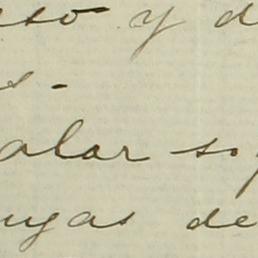 eso y d
s.
alar so
ugas de